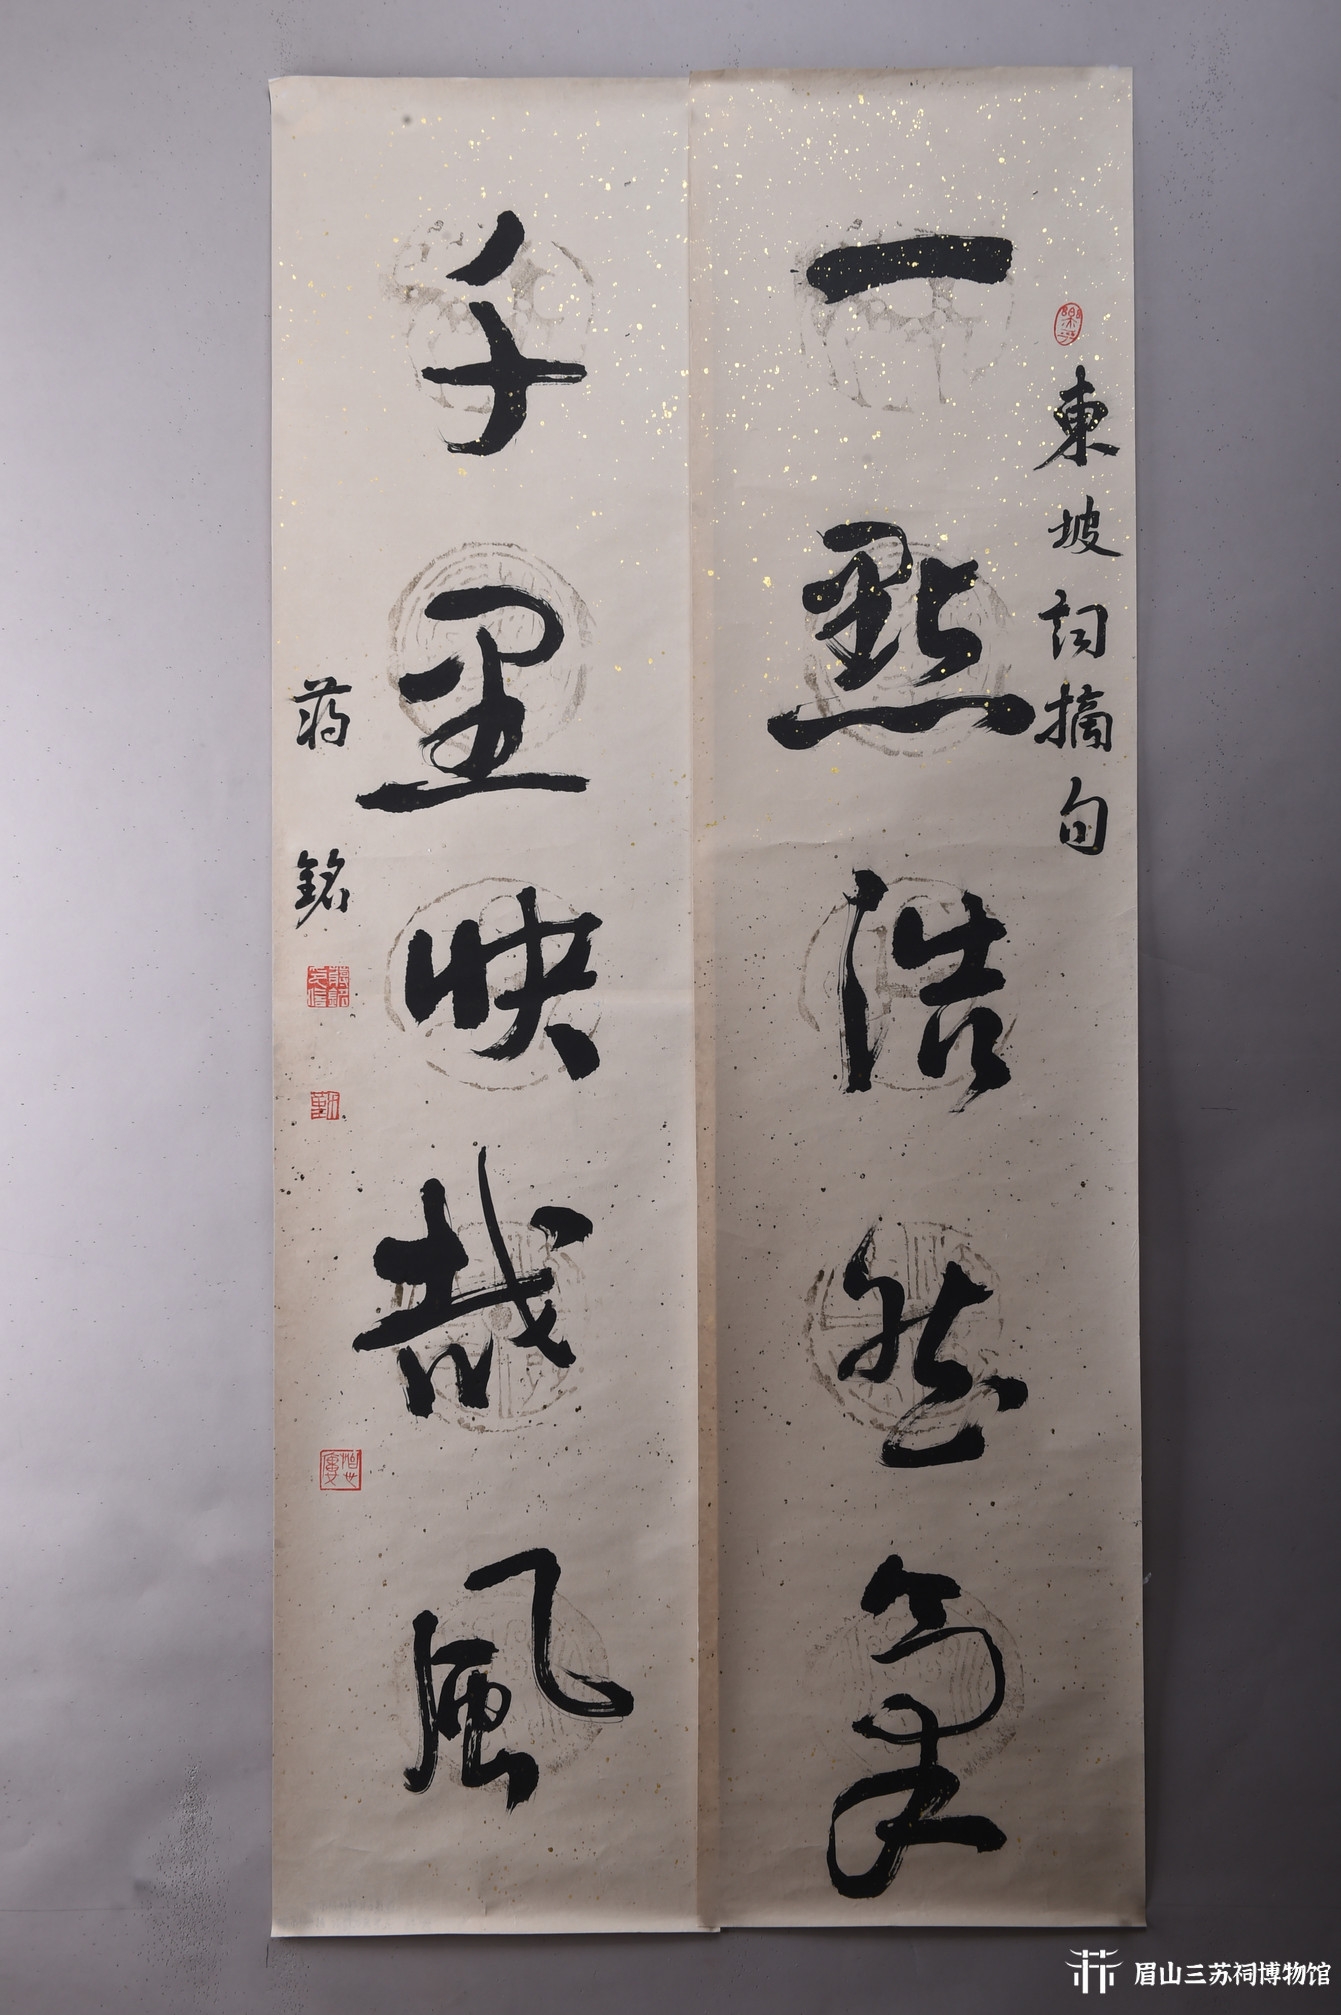 東坡詞摘句
一點浩然氣
千里快哉風
蔣銘
眉山三苏祠博物馆